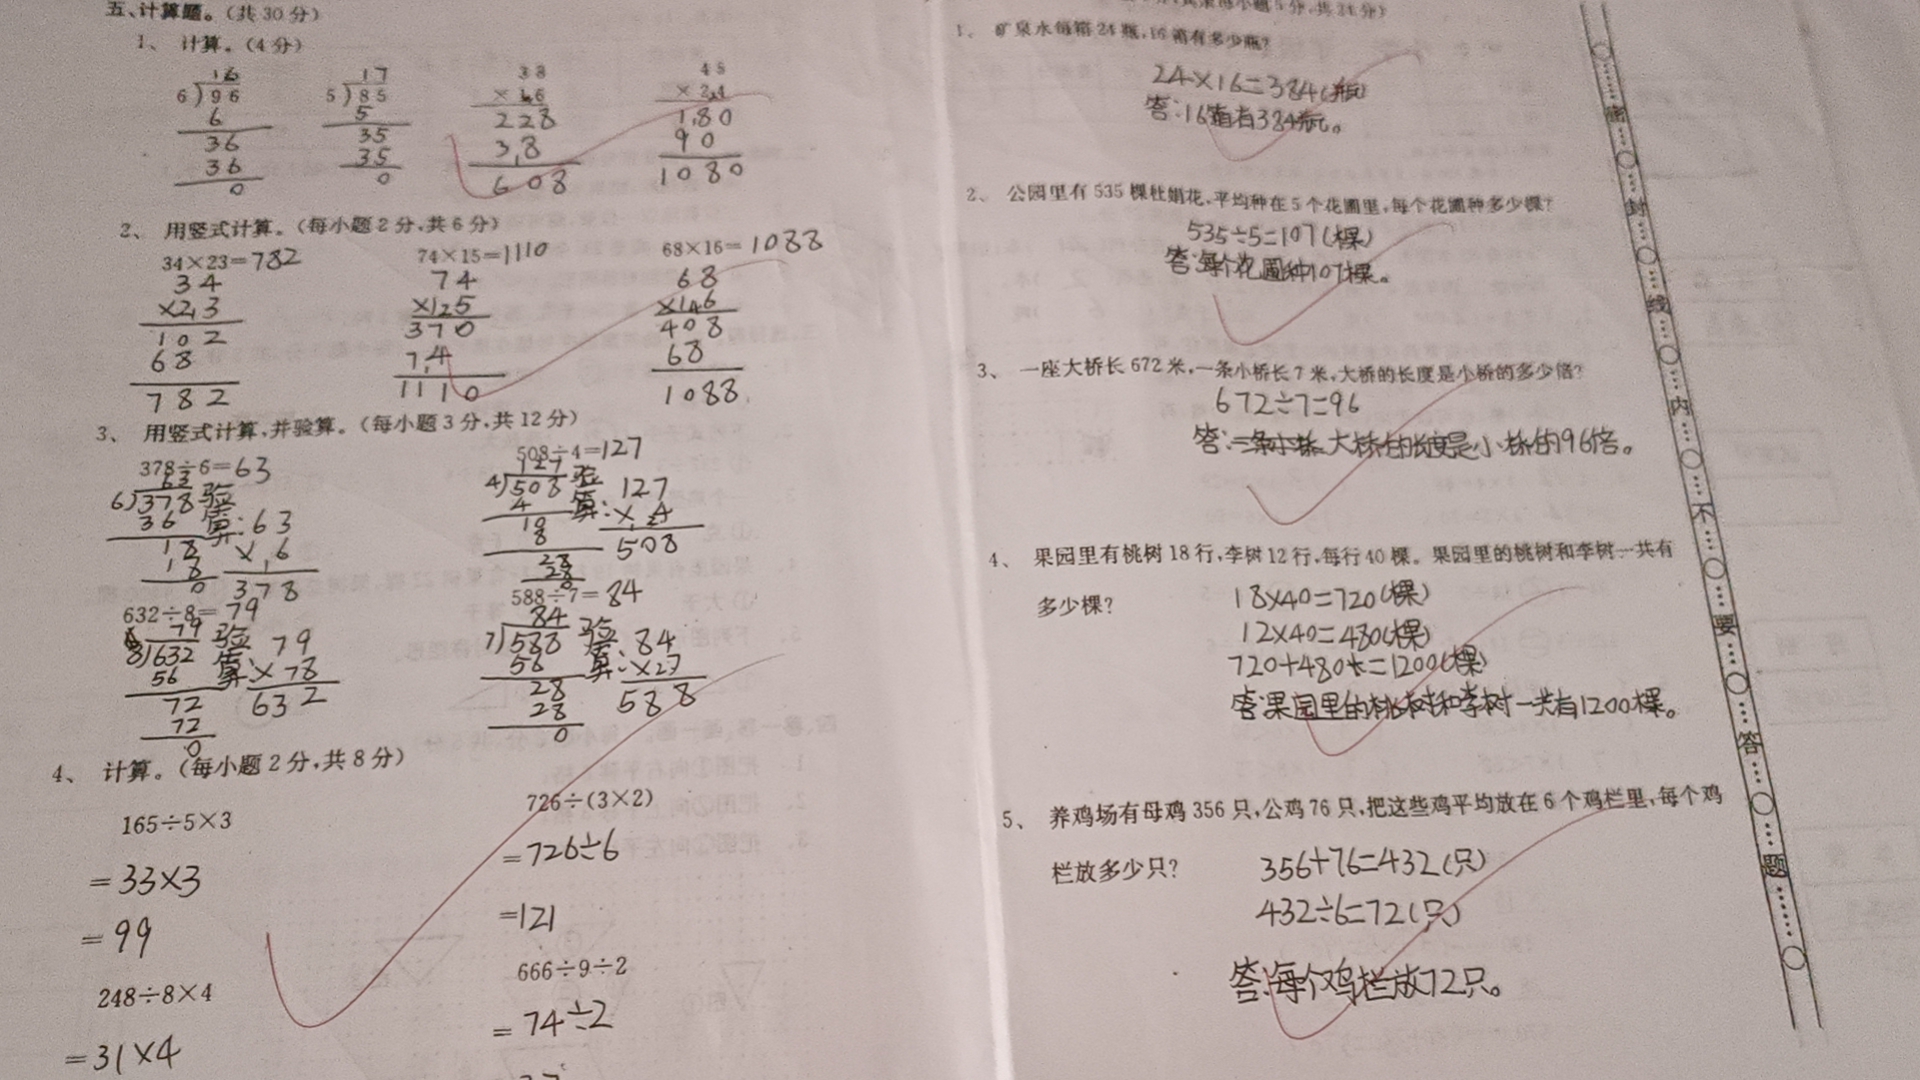 五、计算题。(共30分)
1、计算。(4分)
16
6)96
6
36
36
0
17
5)85
5
35
35
0
38
×16
228
38
608
45
×24
180
90
1080
2、用竖式计算。(每小题2分,共6分)
34×23=782
34
×23
102
68
782
74×15=1110
74
×15
370
74
1110
68×16=1088
68
×16
408
68
1088
3、用竖式计算,并验算。(每小题3分,共12分)
378÷6=63
63
6)378
36
18
18
0
验算:63
×6
378
508÷4=127
127
4)508
4
10
8
28
28
0
验算:127
×4
508
632÷8=79
79
8)632
56
72
72
0
验算:79
×78
632
588÷7=84
84
7)588
56
28
28
0
验算:84
×27
588
4、计算。(每小题2分,共8分)
165÷5×3
=33×3
=99
726÷(3×2)
=726÷6
=121
248÷8×4
=31×4
666÷9÷2
=74÷2
1、矿泉水每箱24瓶,16箱有多少瓶?
24×16=384(瓶)
答:16箱有384瓶。
2、公园里有535棵杜娟花,平均种在5个花圃里,每个花圃种多少棵?
535÷5=107(棵)
答:每个花圃种107棵。
3、一座大桥长672米,一条小桥长7米,大桥的长度是小桥的多少倍?
672÷7=96
答:大桥的长度是小桥的96倍。
4、果园里有桃树18行,李树12行,每行40棵。果园里的桃树和李树一共有
多少棵?
18×40=720(棵)
12×40=480(棵)
720+480=1200(棵)
答:果园里的桃树和李树一共有1200棵。
5、养鸡场有母鸡356只,公鸡76只,把这些鸡平均放在6个鸡栏里,每个鸡
栏放多少只?
356+76=432(只)
432÷6=72(只)
答:每个鸡栏放72只。
密封线内不要答题